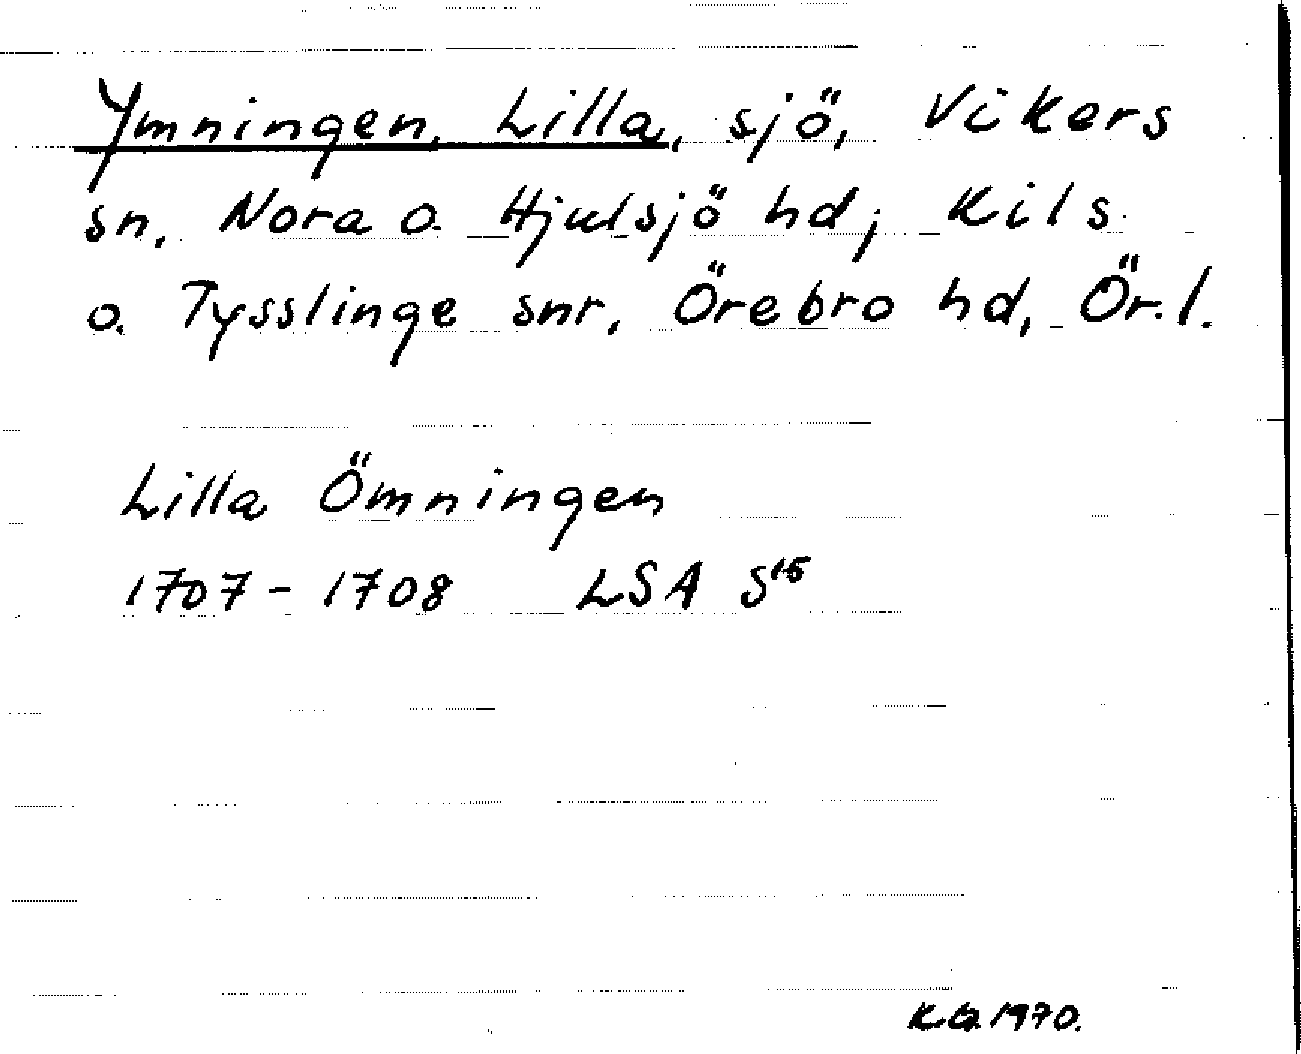 Ymningen, Lilla, sjö, Vikers
sn, Nora o. Hjulsjö hd; Kils
o. Tysslinge snr, Örebro hd, Ör. l.
Lilla Ömningen
1707-1708 LSA S¹⁵
K.G. 1970.